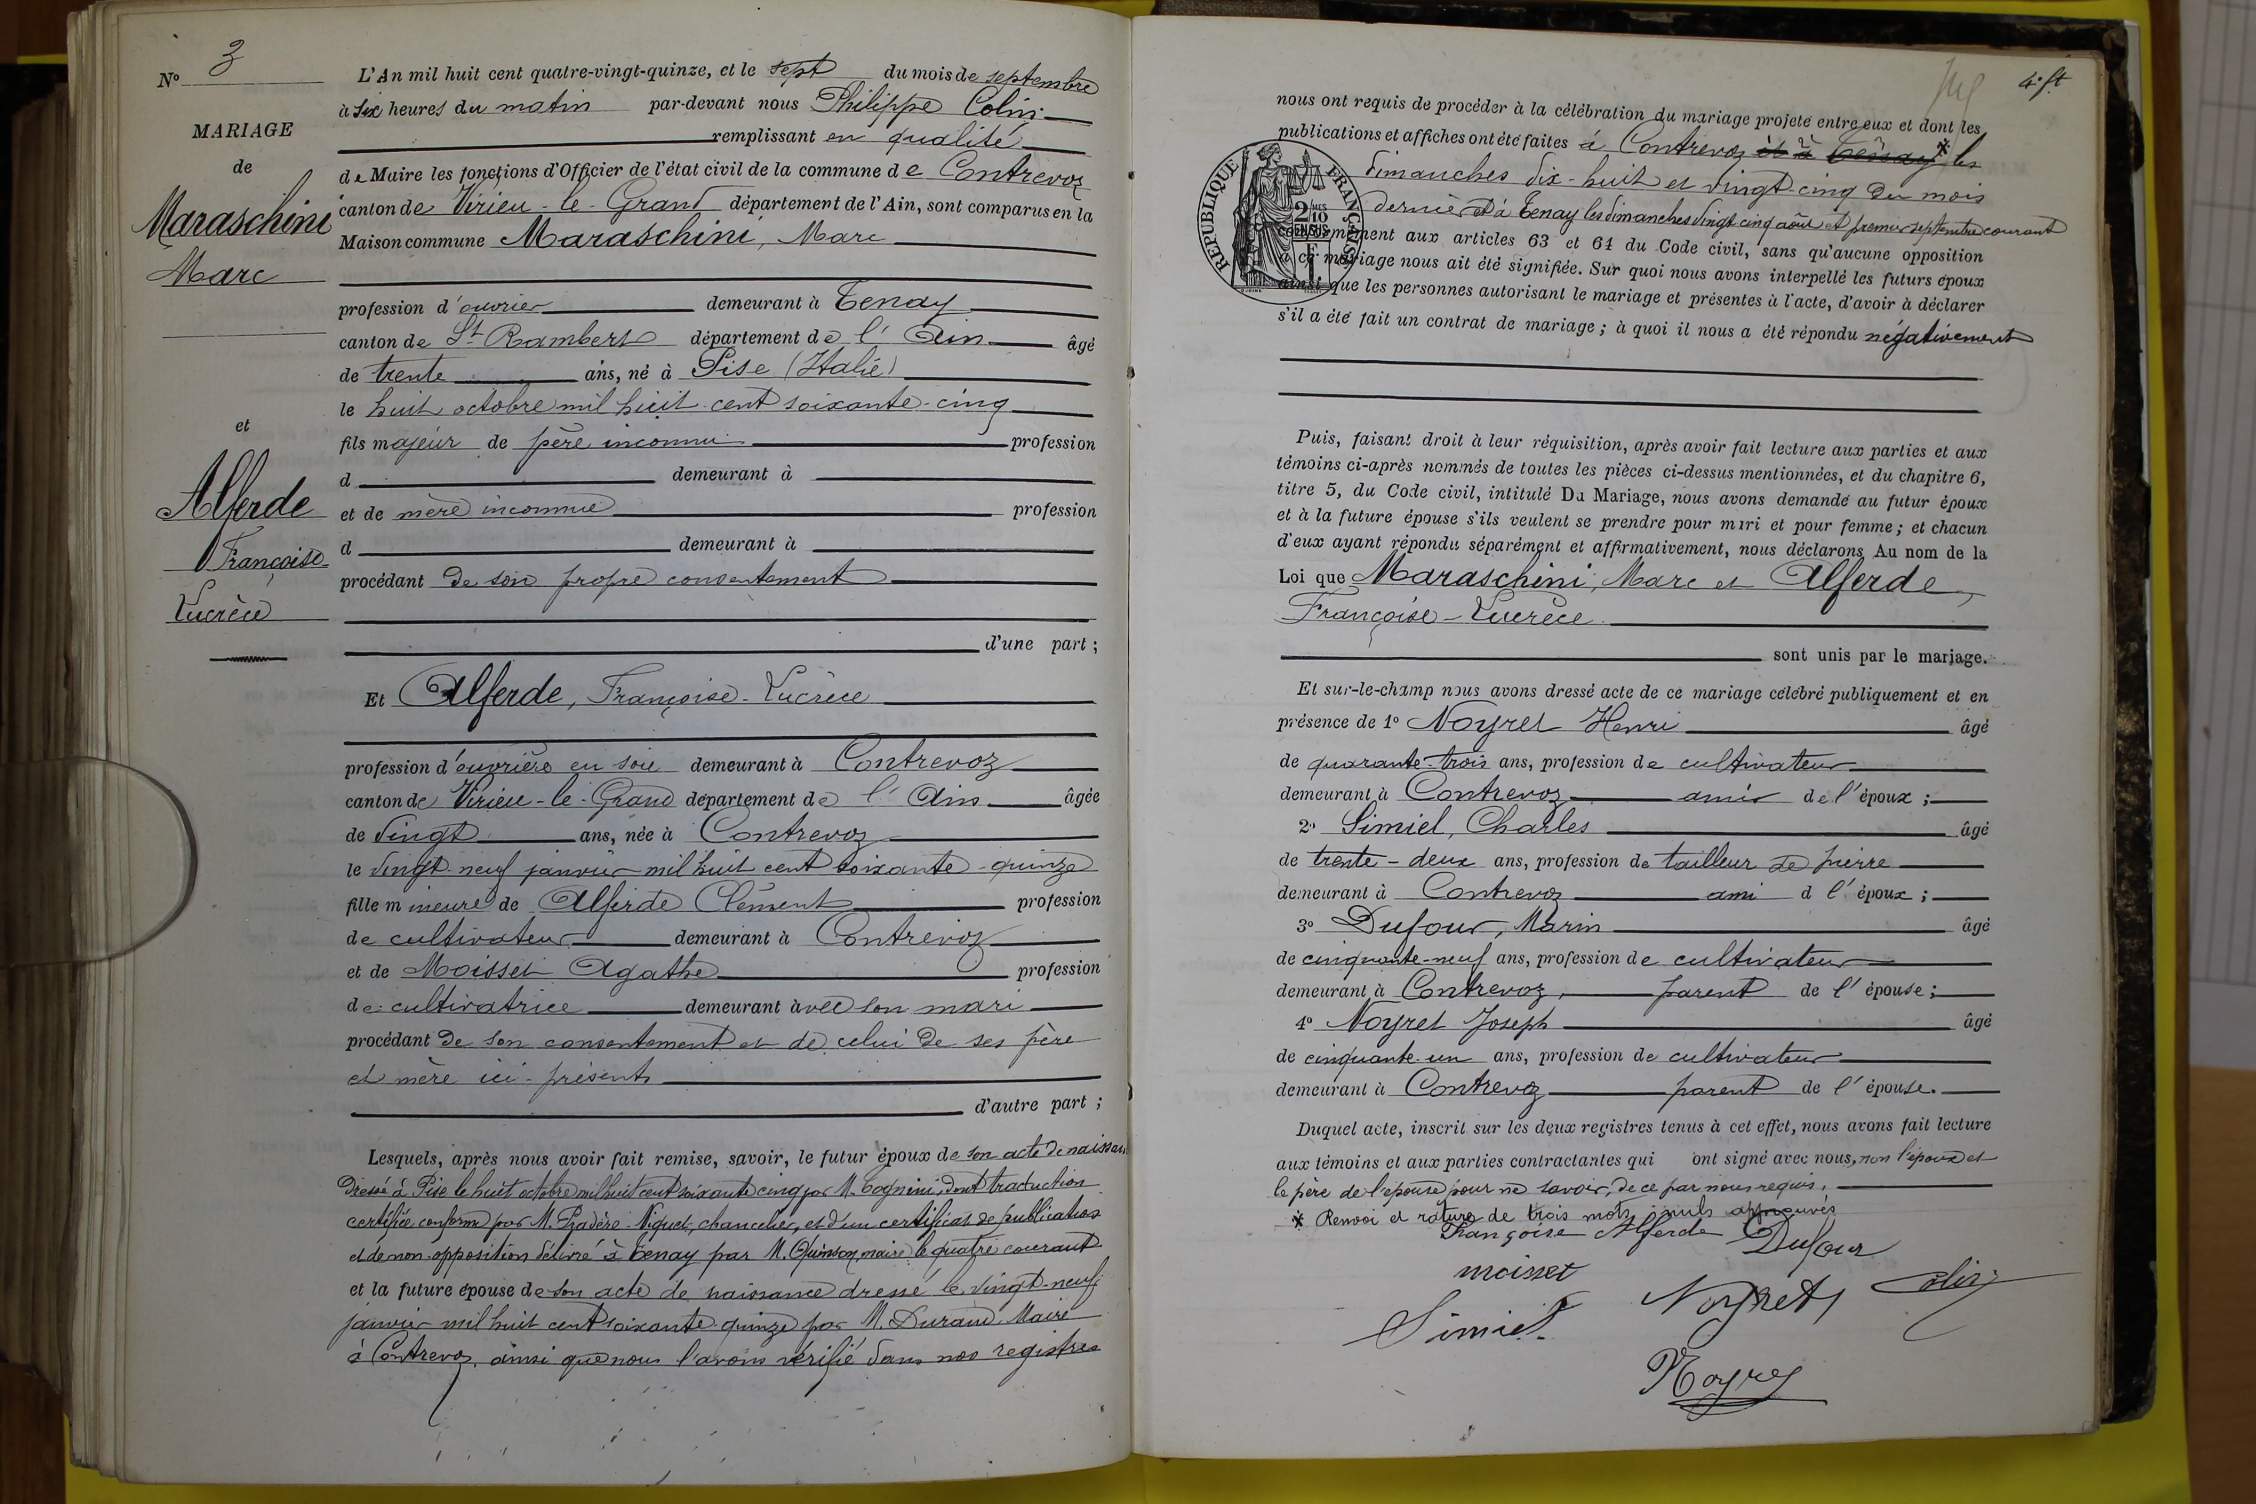 N° 3
MARIAGE
de
Maraschini
Marc
et
Alferde
Françoise
Lucrèce
L'An mil huit cent quatre-vingt-quinze, et le sept du mois de septembre
à six heures du matin par-devant nous Philippe Colin
remplissant en qualité
de Maire les fonctions d'Officier de l'état civil de la commune de Contrevoz
canton de Virieu-le-Grand département de l'Ain, sont comparus en la
Maison commune Maraschini, Marc
profession d'ouvrier demeurant à Tenay
canton de St Rambert département de l'Ain âgé
de trente ans, né à Pise (Italie)
le huit octobre mil huit cent soixante-cinq
fils majeur de père inconnu profession
d demeurant à
et de mère inconnue profession
d demeurant à
procédant de son propre consentement
d'une part ;
Et Alferde, Françoise-Lucrèce
profession d'ouvrière en soie demeurant à Contrevoz
canton de Virieu-le-Grand département de l'Ain âgée
de vingt ans, née à Contrevoz
le vingt-neuf janvier mil huit cent soixante-quinze
fille mineure de Alferde Clément profession
de cultivateur demeurant à Contrevoz
et de Moisset Agathe profession
de cultivatrice demeurant avec son mari
procédant de son consentement et de celui de ses père
et mère ici-présents
d'autre part ;
Lesquels, après nous avoir fait remise, savoir, le futur époux de son acte de naissance
dressé à Pise le huit octobre mil huit cent soixante cinq par M. Tognini, dont traduction
certifiée conforme par M. Pradère-Niquet, chancelier, et d'un certificat de publication
et de non-opposition délivré à Tenay par M. Quinson, maire le quatre courant
et la future épouse de son acte de naissance dressé le vingt-neuf
janvier mil huit cent soixante-quinze par M. Durand, Maire
à Contrevoz, ainsi que nous l'avons vérifié dans nos registres
4e ft
nous ont requis de procéder à la célébration du mariage projeté entre eux et dont les
publications et affiches ont été faites à Contrevoz et à Tenay * les
dimanches dix-huit et vingt-cinq du mois
dernier et à Tenay les dimanches vingt-cinq août et premier septembre courant
conformément aux articles 63 et 64 du Code civil, sans qu'aucune opposition
à ce mariage nous ait été signifiée. Sur quoi nous avons interpellé les futurs époux
ainsi que les personnes autorisant le mariage et présentes à l'acte, d'avoir à déclarer
s'il a été fait un contrat de mariage ; à quoi il nous a été répondu négativement
RÉPUBLIQUE FRANÇAISE
2/10 MES
EN SUS
Puis, faisant droit à leur réquisition, après avoir fait lecture aux parties et aux
témoins ci-après nommés de toutes les pièces ci-dessus mentionnées, et du chapitre 6,
titre 5, du Code civil, intitulé Du Mariage, nous avons demandé au futur époux
et à la future épouse s'ils veulent se prendre pour mari et pour femme ; et chacun
d'eux ayant répondu séparément et affirmativement, nous déclarons Au nom de la
Loi que Maraschini, Marc et Alferde,
Françoise-Lucrèce
sont unis par le mariage.
Et sur-le-champ nous avons dressé acte de ce mariage célébré publiquement et en
présence de 1° Noyret Henri âgé
de quarante-trois ans, profession de cultivateur
demeurant à Contrevoz ami de l'époux ;
2° Simiel, Charles âgé
de trente-deux ans, profession de tailleur de pierre
demeurant à Contrevoz ami d l'époux ;
3° Dufour, Marin âgé
de cinquante-neuf ans, profession de cultivateur
demeurant à Contrevoz, parent de l'épouse ;
4° Noyret Joseph âgé
de cinquante-un ans, profession de cultivateur
demeurant à Contrevoz parent de l'épouse.
Duquel acte, inscrit sur les deux registres tenus à cet effet, nous avons fait lecture
aux témoins et aux parties contractantes qui ont signé avec nous, non l'époux et
le père de l'épouse pour ne savoir, de ce par nous requis.
* Renvoi et rature de trois mots nuls approuvés
Françoise Alferde Dufour
moisset
Simiel Noyret Colin
Noyret